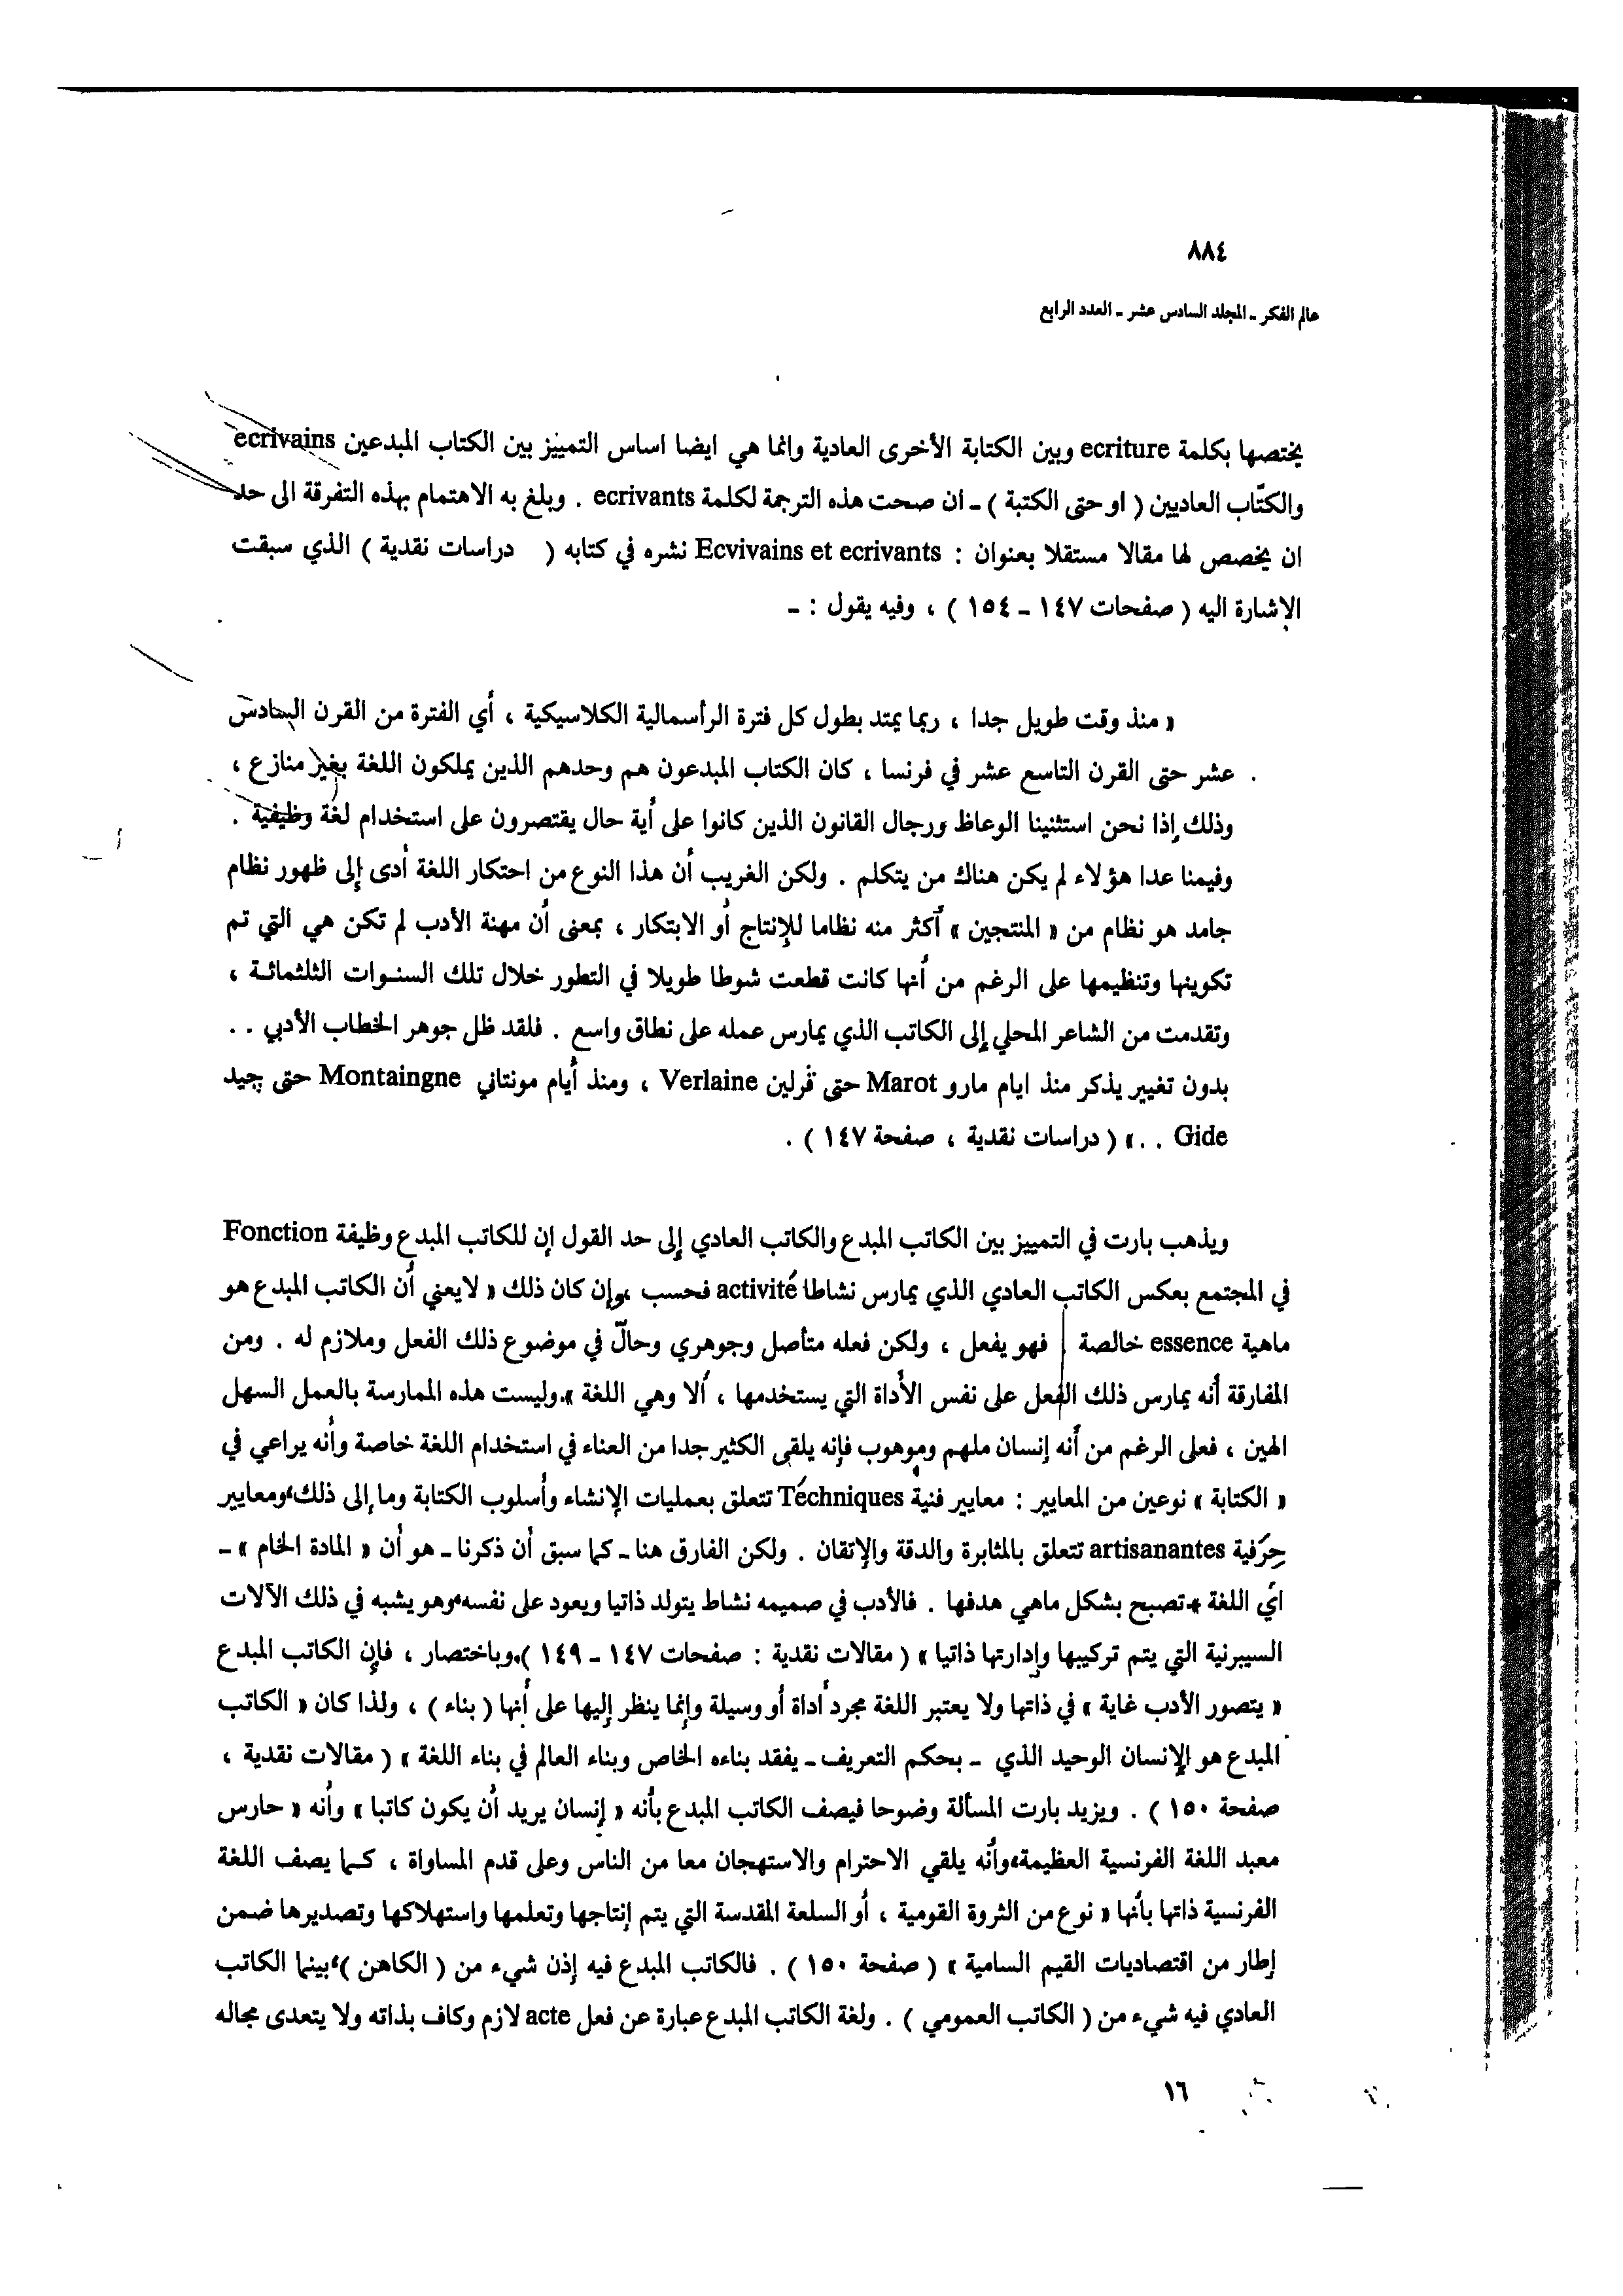 ٨٨٤
عالم الفكر ـ المجلد السادس عشر ـ العدد الرابع
يختصها بكلمة ecriture وبين الكتابة الأخرى العادية وانما هي ايضا اساس التمييز بين الكتاب المبدعين ecrivains
والكتّاب العاديين ( او حتى الكتبة ) ـ ان صحت هذه الترجمة لكلمة ecrivants . وبلغ به الاهتمام بهذه التفرقة الى حد
ان يخصص لها مقالا مستقلا بعنوان : Ecvivains et ecrivants نشره في كتابه ( دراسات نقدية ) الذي سبقت
الإشارة اليه ( صفحات ١٤٧ ـ ١٥٤ ) ، وفيه يقول : ـ
« منذ وقت طويل جدا ، ربما يمتد بطول كل فترة الرأسمالية الكلاسيكية ، أي الفترة من القرن السادس
عشر حتى القرن التاسع عشر في فرنسا ، كان الكتاب المبدعون هم وحدهم الذين يملكون اللغة بغير منازع ،
وذلك إذا نحن استثنينا الوعاظ ورجال القانون الذين كانوا على أية حال يقتصرون على استخدام لغة وظيفية .
وفيمنا عدا هؤلاء لم يكن هناك من يتكلم . ولكن الغريب أن هذا النوع من احتكار اللغة أدى إلى ظهور نظام
جامد هو نظام من « المنتجين » أكثر منه نظاما للإنتاج أو الابتكار ، بمعنى أن مهنة الأدب لم تكن هي التي تم
تكوينها وتنظيمها على الرغم من أنها كانت قطعت شوطا طويلا في التطور خلال تلك السنوات الثلثمائة ،
وتقدمت من الشاعر المحلي إلى الكاتب الذي يمارس عمله على نطاق واسع . فلقد ظل جوهر الخطاب الأدبي . .
بدون تغيير يذكر منذ ايام مارو Marot حتى ڤرلين Verlaine ، ومنذ أيام مونتاني Montaingne حتى چيد
Gide . . » ( دراسات نقدية ، صفحة ١٤٧ ) .
ويذهب بارت في التمييز بين الكاتب المبدع والكاتب العادي إلى حد القول إن للكاتب المبدع وظيفة Fonction
في المجتمع بعكس الكاتب العادي الذي يمارس نشاطا activité فحسب ،وإن كان ذلك « لايعني أن الكاتب المبدع هو
ماهية essence خالصة فهو يفعل ، ولكن فعله متأصل وجوهري وحالّ في موضوع ذلك الفعل وملازم له . ومن
المفارقة أنه يمارس ذلك الفعل على نفس الأداة التي يستخدمها ، ألا وهي اللغة ».وليست هذه الممارسة بالعمل السهل
الهين ، فعلى الرغم من أنه إنسان ملهم وموهوب فإنه يلقى الكثير جدا من العناء في استخدام اللغة خاصة وأنه يراعي في
« الكتابة » نوعين من المعايير : معايير فنية Téchniques تتعلق بعمليات الإنشاء وأسلوب الكتابة وما إلى ذلك،ومعايير
حِرَفية artisanantes تتعلق بالمثابرة والدقة والإتقان . ولكن الفارق هنا ـ كما سبق أن ذكرنا ـ هو أن « المادة الخام » ـ
اي اللغة ـ تصبح بشكل ماهي هدفها . فالأدب في صميمه نشاط يتولد ذاتيا ويعود على نفسه،وهو يشبه في ذلك الآلات
السيبرنية التي يتم تركيبها وإدارتها ذاتيا » ( مقالات نقدية : صفحات ١٤٧ ـ ١٤٩ ).وباختصار ، فإن الكاتب المبدع
« يتصور الأدب غاية » في ذاتها ولا يعتبر اللغة مجرد أداة أو وسيلة وإنما ينظر إليها على أنها ( بناء ) ، ولذا كان « الكاتب
المبدع هو الإنسان الوحيد الذي ـ بحكم التعريف ـ يفقد بناءه الخاص وبناء العالم في بناء اللغة » ( مقالات نقدية ،
صفحة ١٥٠ ) . ويزيد بارت المسألة وضوحا فيصف الكاتب المبدع بأنه « إنسان يريد أن يكون كاتبا » وأنه « حارس
معبد اللغة الفرنسية العظيمة،وأنه يلقي الاحترام والاستهجان معا من الناس وعلى قدم المساواة ، كما يصف اللغة
الفرنسية ذاتها بأنها « نوع من الثروة القومية ، أو السلعة المقدسة التي يتم إنتاجها وتعلمها واستهلاكها وتصديرها ضمن
إطار من اقتصاديات القيم السامية » ( صفحة ١٥٠ ) . فالكاتب المبدع فيه إذن شيء من ( الكاهن )،بينما الكاتب
العادي فيه شيء من ( الكاتب العمومي ) . ولغة الكاتب المبدع عبارة عن فعل acte لازم وكاف بذاته ولا يتعدى مجاله
١٦